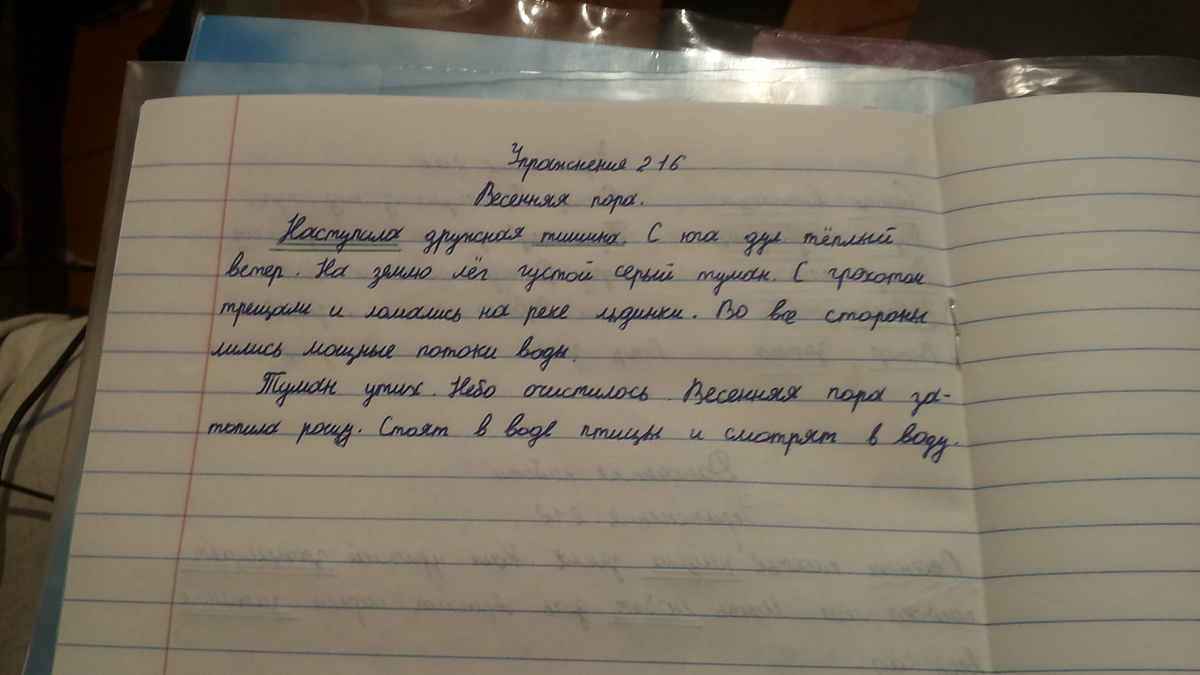 Упражнения 216
Весенняя пора.
Наступила дружная тишина. С юга дул тёплый
ветер. На землю лёг густой серый туман. С грохотом
трещали и ломались на реке льдинки. Во все стороны
лились мощные потоки воды.
Туман утих. Небо очистилось. Весенняя пора за-
топила рощу. Стоят в воде птицы и смотрят в воду.